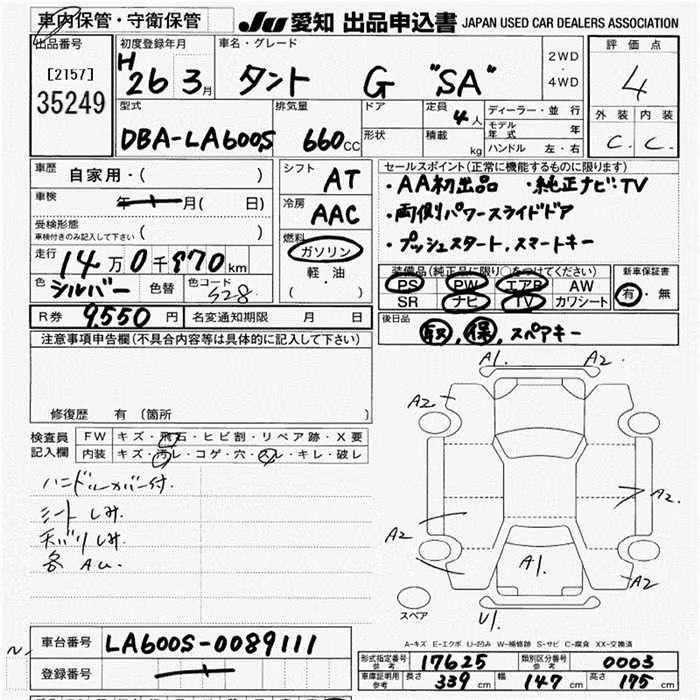 車内保管・守衛保管
JU 愛知 出品申込書 JAPAN USED CAR DEALERS ASSOCIATION
出品番号
[2157]
35249
初度登録年月
H 26 3月
車名・グレード
タント G "SA"
2WD
・
4WD
評価点
4
外装 内装
C. C.
型式
DBA-LA600S
排気量
660CC
ドア
形状
定員
4人
積載
kg
ディーラー・並行
モデル年式 年
ハンドル 左・右
車歴 自家用・( )
車検 年 月( 日)
受検形態
車検付きのみ記入して下さい ( )
走行 14万0千970km
色 シルバー 色替 色コード S28
R券 9,550円 名変通知期限 月 日
シフト
AT
冷房
AAC
燃料
ガソリン
軽・油
( )
セールスポイント(正常に機能するものに限ります)
・AA初出品 ・純正ナビ・TV
・両側パワースライドドア
・プッシュスタート,スマートキー
装備品(純正品に限り○をつけてください)
PS PW エアB AW
SR ナビ TV カワシート
新車保証書
有・無
後日品
取,保,スペアキー
注意事項申告欄(不具合内容等は具体的に記入して下さい)
修復歴 有 (箇所 )
検査員記入欄
FW キズ・飛石・ヒビ割・リペア跡・X要
内装 キズ・汚レ・コゲ・穴・スレ・キレ・破レ
ハンドルカバー付.
シートしみ.
天バリしみ.
各AU.
A1. A2.
A2
A2.
A2
A1.
A2
U1.
スペア
A-キズ E-エクボ U-凹み W-補修跡 S-サビ C-腐食 XX-交換済
N.
車台番号 LA600S-0089111
登録番号
形式指定番号 参考 17625 類別区分番号 参考 0003
車庫証明用 参考 長さ 339cm 幅 147cm 高さ 175cm